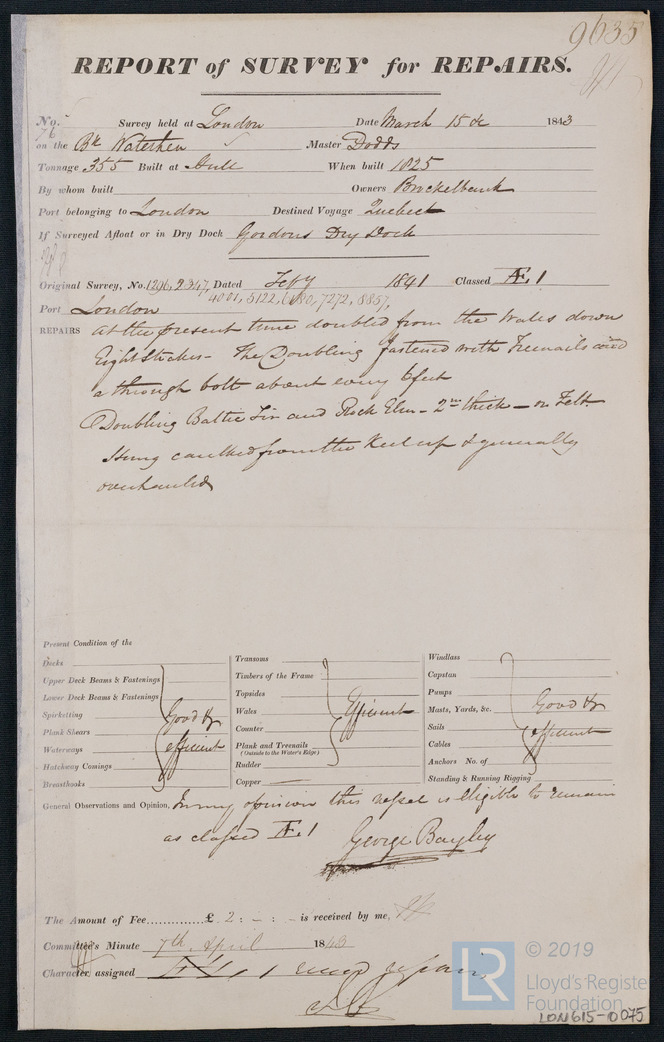 9635
REPORT of SURVEY for REPAIRS.
No. 76 Survey held at London Date March 15th 1843
on the Bk Watershen Master Dodds
Tonnage 355 Built at Hull When built 1825
By whom built Owners Brockelbank
Port belonging to London Destined Voyage Quebeck
If Surveyed Afloat or in Dry Dock Gordons Dry Dock
Original Survey, No. 1296, 2347, Dated Feby 1841 Classed Æ 1
4001, 5122, 7272, 8857,
Port London
REPAIRS at the present time doubled from the Wales down
Eight Strakes - The Doubling fastened with Treenails and
a through bolt about every 6 feet
Doubling Baltic Fir and Rock Elm - 2 in thick - on Felt
caulked from the Keel up & generally
overhauled
Present Condition of the
Decks
Upper Deck Beams & Fastenings
Lower Deck Beams & Fastenings
Spirketting
Plank-Shears
Waterways
Hatchway Comings
Breasthooks
Good &
efficient
Transoms
Timbers of the Frame
Topsides
Wales
Counter
Plank and Treenails
(Outside to the Water's Edge)
Rudder
Copper —
Efficient
Windlass
Capstan
Pumps
Masts, Yards, &c.
Sails
Cables
Anchors No. of
Standing & Running Rigging
Good &
efficient
General Observations and Opinion, In my opinion this vessel is eligible to remain
as classed Æ 1
George Bayley
The Amount of Fee............ £ 2 : - : - is received by me,
Committee's Minute 7th April 1843
Character assigned Æ 1
© 2019
LR
Lloyd's Registe
Foundation
LON615-0075